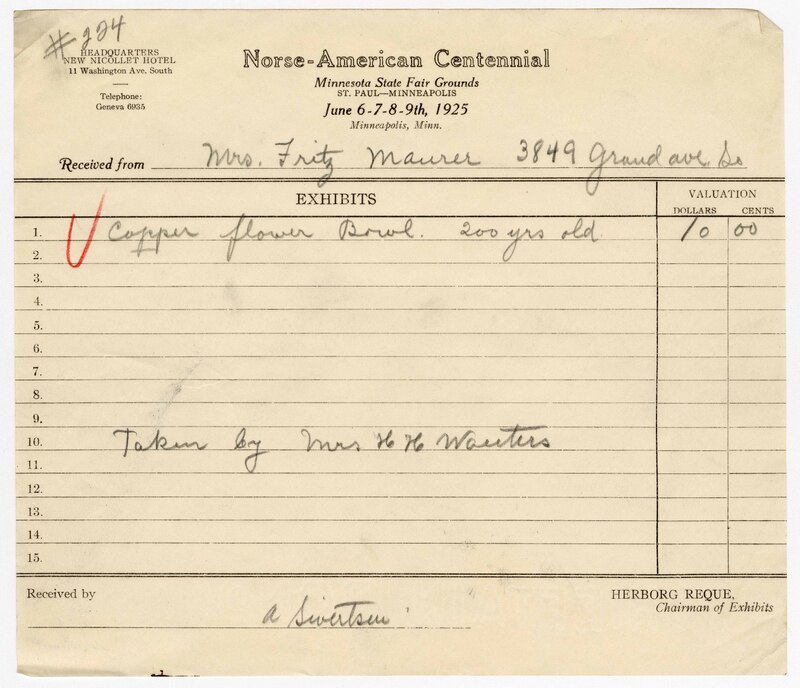 #224
HEADQUARTERS
NEW NICOLLET HOTEL
11 Washington Ave. South
Telephone:
Geneva 6935
Norse-American Centennial
Minnesota State Fair Grounds
ST. PAUL—MINNEAPOLIS
June 6-7-8-9th, 1925
Minneapolis, Minn.
Received from Mrs. Fritz Maurer 3849 Grand ave. So
EXHIBITS
VALUATION
DOLLARS CENTS
1. Copper flower Bowl. 200 yrs old 10 00
2.
3.
4.
5.
6.
7.
8.
9.
10. Taken by Mrs H H Wauters
11.
12.
13.
14.
15.
Received by
A Sivertsen
HERBORG REQUE,
Chairman of Exhibits